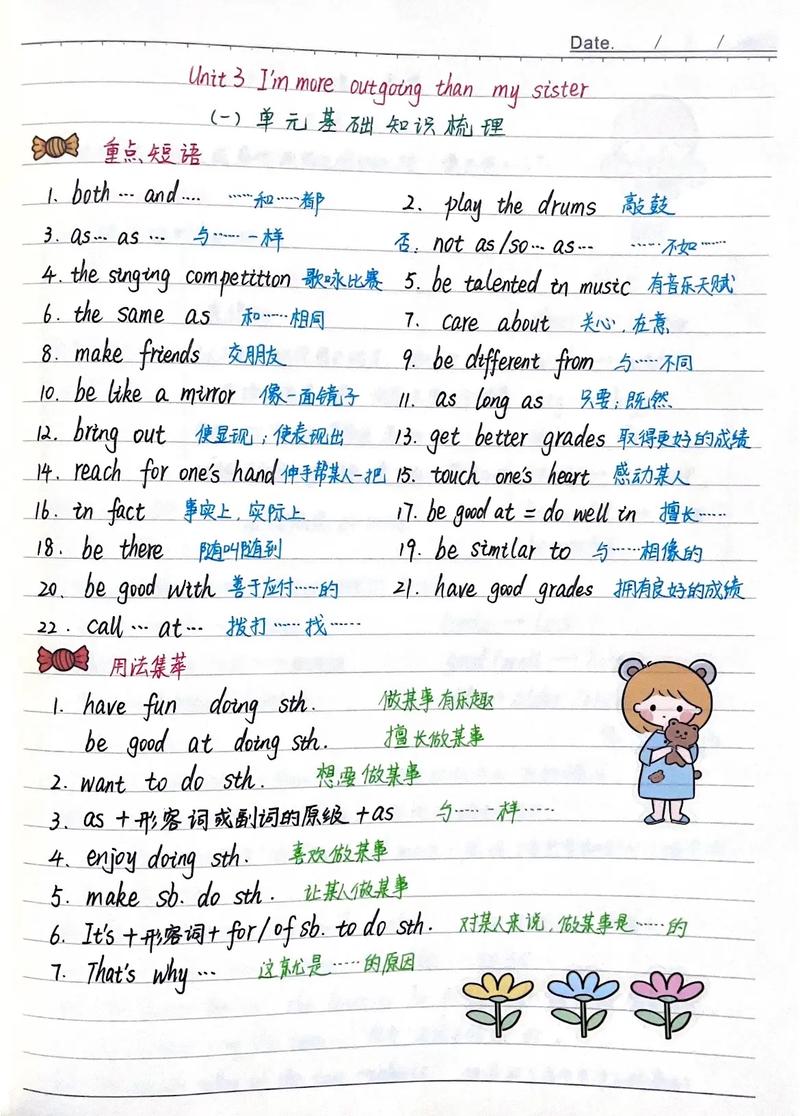 Date. / /
Unit 3 I'm more outgoing than my sister
(一) 单元基础知识梳理
重点短语
1. both … and … ……和……都 2. play the drums 敲鼓
3. as… as … 与……一样 否: not as/so… as… ……不如……
4. the singing competition 歌咏比赛 5. be talented in music 有音乐天赋
6. the same as 和……相同 7. care about 关心,在意
8. make friends 交朋友 9. be different from 与……不同
10. be like a mirror 像一面镜子 11. as long as 只要;既然
12. bring out 使显现;使表现出 13. get better grades 取得更好的成绩
14. reach for one's hand 伸手帮某人一把 15. touch one's heart 感动某人
16. in fact 事实上,实际上 17. be good at = do well in 擅长……
18. be there 随叫随到 19. be similar to 与……相像的
20. be good with 善于应付……的 21. have good grades 拥有良好的成绩
22. call … at … 拨打……找……
用法集萃
1. have fun doing sth. 做某事有乐趣
be good at doing sth. 擅长做某事
2. want to do sth. 想要做某事
3. as+形容词或副词的原级+as 与……一样……
4. enjoy doing sth. 喜欢做某事
5. make sb. do sth. 让某人做某事
6. It's+形容词+for/of sb. to do sth. 对某人来说,做某事是……的
7. That's why … 这就是……的原因